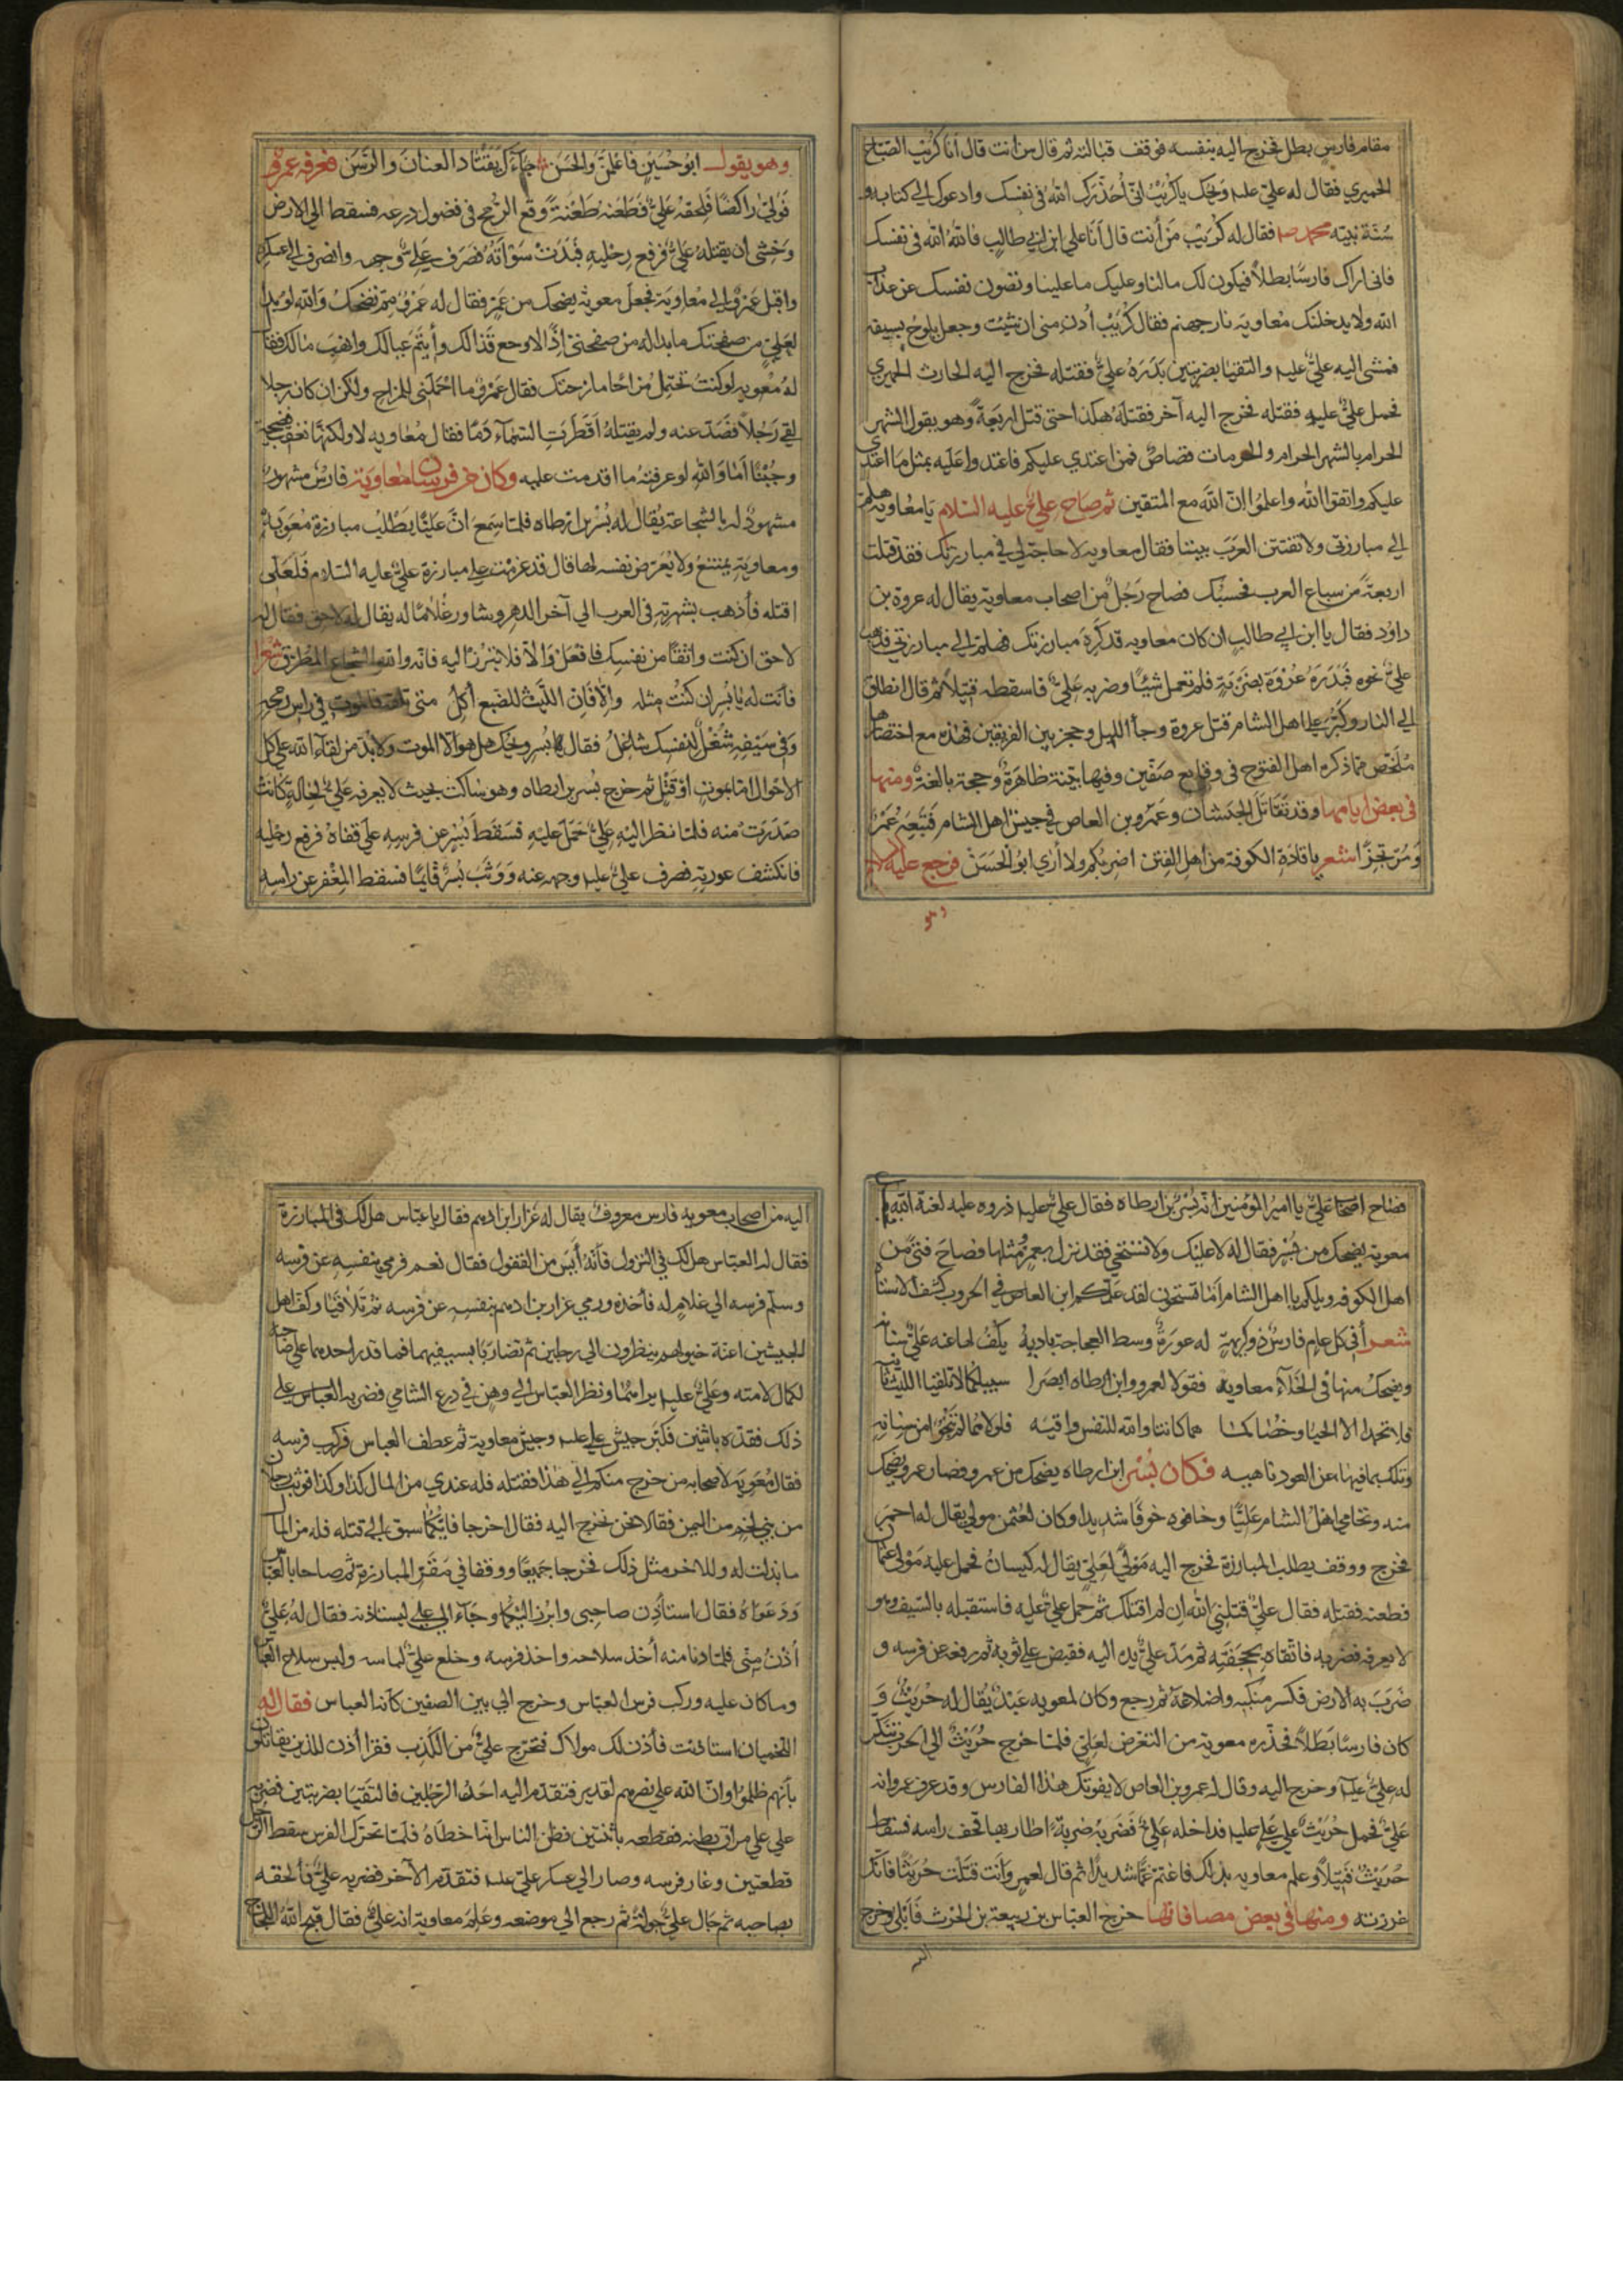 مقام فارس بطل فخرج اليه بنفسه فوقف قبالته ثم قال من انت قال انا كريب الصباح
الحميري فقال له علي عليه ويحك ياكريب اني أحذرك الله في نفسك وادعوك الي كتابه و
سنة نبيه محمد صه فقال له كريب من أنت قال أنا علي ابن ابي طالب فالله الله في نفسك
فاني اراك فارسا بطلا فيكون لك مالنا وعليك ما علينا وتصون نفسك عن عذاب
الله ولا يدخلنك معاويه نار جهنم فقال كريب أدن مني ان شيت وجعل يلوح بسيفه
فمشى اليه علي عليه والتقيا بضربتين بدره علي فقتله فخرج اليه الحارث الحميري
فحمل علي عليه فقتله فخرج اليه آخر فقتله هكذا حتى قتل اربعة وهو يقول الشهر
الحرام بالشهر الحرام والحرمات قصاص فمن اعتدي عليكم فاعتدوا عليه بمثل ما اعتدي
عليكم واتقوا الله واعلموا ان الله مع المتقين ثم صاح علي عليه السلام يا معاويه هلم
الي مبارزتي ولا تفتتن العرب بيننا فقال معاويه لا حاجة لي في مبارزتك فقد قتلت
اربعة من سباع العرب فحسبك فصاح رجل من اصحاب معاوية يقال له عروة بن
داود فقال يا ابن ابي طالب ان كان معاويه قد كره مبارزتك فهلم الي مبارزتي فذهب
علي نحوه فبدره عروة بضربة فلم تعمل شيئا وضربه علي فاسقطه قتيلا ثم قال انطلق
الي النار وكبر علي اهل الشام قتل عروة وجاء الليل وحجز بين الفريقين فهذه مع اختصارها
ملخص مما ذكره اهل الفتوح في وقايع صفين وفيها بينة ظاهرة وحجة بالغة ومنها
في بعض ايامها وقد تقاتل الجيشان وعمرو بن العاص في جيش اهل الشام فتبعه عمرا
ومرتجزا شعر ياقادة الكوفة من اهل الفتن اضربكم ولا أري ابو الحسن فرجع عليه
وهو
وهو يقول ابو حسين فاعلمن والحسن جاءك يقتاد العنان والرسن فعرفه عمرو
فولي راكضا فلحقه علي فطعنه طعنة وقع الرمح في فضول درعه فسقط الي الارض
وخشى أن يقتله علي فرفع رجليه فبدت سوأته فصرف علي وجهه وانصرف الي عسكره
واقبل عمرو الي معاوية فجعل معوية يضحك من عمر فقال له عمرو مم تضحك والله لو بدا
لعلي من صفحتك ما بدا له من صفحتي اذا لاوجع قذالك وأيتم عيالك وانهب مالك فقا
له معويه لو كنت تحتمل مزاحا مازحتك فقال عمرو ما احملني للمزاح ولكن ان كان رجلا
لقي رجلا فصد عنه ولم يقتله أقطرت السماء دما فقال معاويه لا ولكنها تعقب فضيحة
وجبنا أما والله لو عرفته ما اقدمت عليه وكان من فرسان معاوية فارس مشهور
مشهود له بالشجاعة يقال له بسر بن ارطاه فلما سمع ان عليا يطلب مبارزة معوية
ومعاوية يمتنع ولا يعرض نفسه لها قال قد عزمت علي مبارزة علي عليه السلام فلعلى
اقتله فأذهب بشهرته في العرب الي آخر الدهر وشاور غلاما له يقال له لاحق فقال له
لاحق ان كنت واثقا من نفسك فافعل والا فلا تبرز اليه فانه والله الشجاع المطرق شعرا
فأنت له يابسر ان كنت مثله والا فان الليث للضبع آكل متى تلقه فالموت في راس رمحه
وفي سيفه شغل لنفسك شاغل فقال له بسر ويحك هل هو الا الموت ولا بد من لقاء الله علي كل
الاحوال اما بموت أو قتل ثم خرج بسر بن ارطاه وهو ساكت بحيث لا يعرفه علي لحالة كانت
صدرت منه فلما نظر اليه علي حمل عليه فسقط بسر عن فرسه علي قفاه فرفع رجليه
فانكشف عورته فصرف علي عليه وجهه عنه ووثب بسر قايما فسقط المغفر عن راسه
فصاح اصحاب علي يا امير المؤمنين انه بسر بن ارطاه فقال علي عليه ذروه عليه لعنة الله
معوية يضحك من بسر فقال له لا عليك ولا تستحي فقد نزل بعمرو مثلها فصاح فتى من
اهل الكوفه ويلكم يا اهل الشام أما تستحون لقد علمكم ابن العاص في الحروب كشف الاستاه
شعر أفي كل عام فارس ذو كريهة له عورة وسط العجاجة باديه يكف لها عنه علي سنانه
ويضحك منها في الخلاء معاوية فقولا لعمرو وابن ارطاه ابصرا سبيلكما لا تلقيا الليث ثانيه
فلا تحمدا الا الحيا وخصاكما هما كانتا والله للنفس واقيه فلولا هما لم تنجوا من سنانه
وتلك بما فيها عن العود ناهيه فكان بسر ابن ارطاه يضحك من عمرو وصار عمرو يضحك
منه وتحامي اهل الشام عليا وخافوه خوفا شديدا وكان لعثمن مولي يقال له احمر
فخرج ووقف يطلب المبارزة فخرج اليه مولي لعلي يقال له كيسان فحمل عليه مولى عثمان
فطعنه فقتله فقال علي قتلني الله ان لم اقتلك ثم حمل علي عليه فاستقبله بالسيف وهو
لا يعرفه فضربه فاتقاه بحجفته ثم مد علي يده اليه فقبض علي ثوبه ثم رفعه عن فرسه و
ضرب به الارض فكسر منكبه واضلاعه ثم رجع وكان لمعويه عبد يقال له حريث و
كان فارسا بطلا فحذره معوية من التعرض لعلي فلما خرج حريث الي الحرب تنكر
له علي عليه وخرج اليه وقال له عمرو بن العاص لا يفوتك هذا الفارس وقد عرف عمرو انه
علي فحمل حريث علي علي عليه فداخله علي فضربه ضربة اطار بها قحف راسه فسقط
حريث قتيلا وعلم معاويه بذلك فاغتم غما شديدا ثم قال لعمرو أنت قتلت حريثا فانك
غررته ومنها في بعض مصافاتها خرج العباس بن ربيعة بن الحرث فابلي وخرج
اليه
اليه من اصحاب معويه فارس معروف يقال له غرار ابن ادهم فقال يا عباس هل لك في المبارزة
فقال له العباس هل لك في النزول فأنه أيس من القفول فقال نعم فرمي بنفسه عن فرسه
وسلم فرسه الي غلام له فأخذه ورمي غرار بن ادهم بنفسه عن فرسه ثم تلاقيا وكف اهل
الجيشين اعنة خيولهم ينظرون الي رجلين ثم تضاربا بسيفيهما فما قدر احدهما علي صاحبه
لكمال لامته وعلي عليه يراهما ونظر العباس الي وهن في درع الشامي فضربه العباس علي
ذلك فقده باثنين فكبر جيش علي عليه وجيش معاوية ثم عطف العباس فركب فرسه
فقال معويه لاصحابه من خرج منكم الي هذا فقتله فله عندي من المال كذا وكذا فوثب رجلان
من بني لخم من اليمن فقالا نحن نخرج اليه فقال اخرجا فايكما سبق الي قتله فله من المال
ما بذلت له وللاخر مثل ذلك فخرجا جميعا ووقفا في مقر المبارزة ثم صاحا بالعباس
ودعواه فقال استأذن صاحبي وابرز اليكما وجاء الي علي ليستاذنه فقال له علي
أدن مني فلما دنا منه أخذ سلاحه واخذ فرسه وخلع علي لباسه ولبس سلاح العباس
وما كان عليه وركب فرس العباس وخرج الي بين الصفين كأنه العباس فقال له
اللخميان استاذنت فأذن لك مولاك فتحرج علي من الكذب فقرا أذن للذين يقاتلون
بأنهم ظلموا وان الله علي نصرهم لقدير فتقدم اليه احد الرجلين فالتقيا بضربتين فضربه
علي علي مراق بطنه فقطعه باثنتين فظن الناس انه اخطاه فلما تحرك الفرس سقط الرجل
قطعتين وغار فرسه وصار الي عسكر علي عليه فتقدم الآخر فضربه علي فألحقه
بصاحبه ثم جال علي جولة ثم رجع الي موضعه وعلم معاوية انه علي فقال قبح الله اللجاج